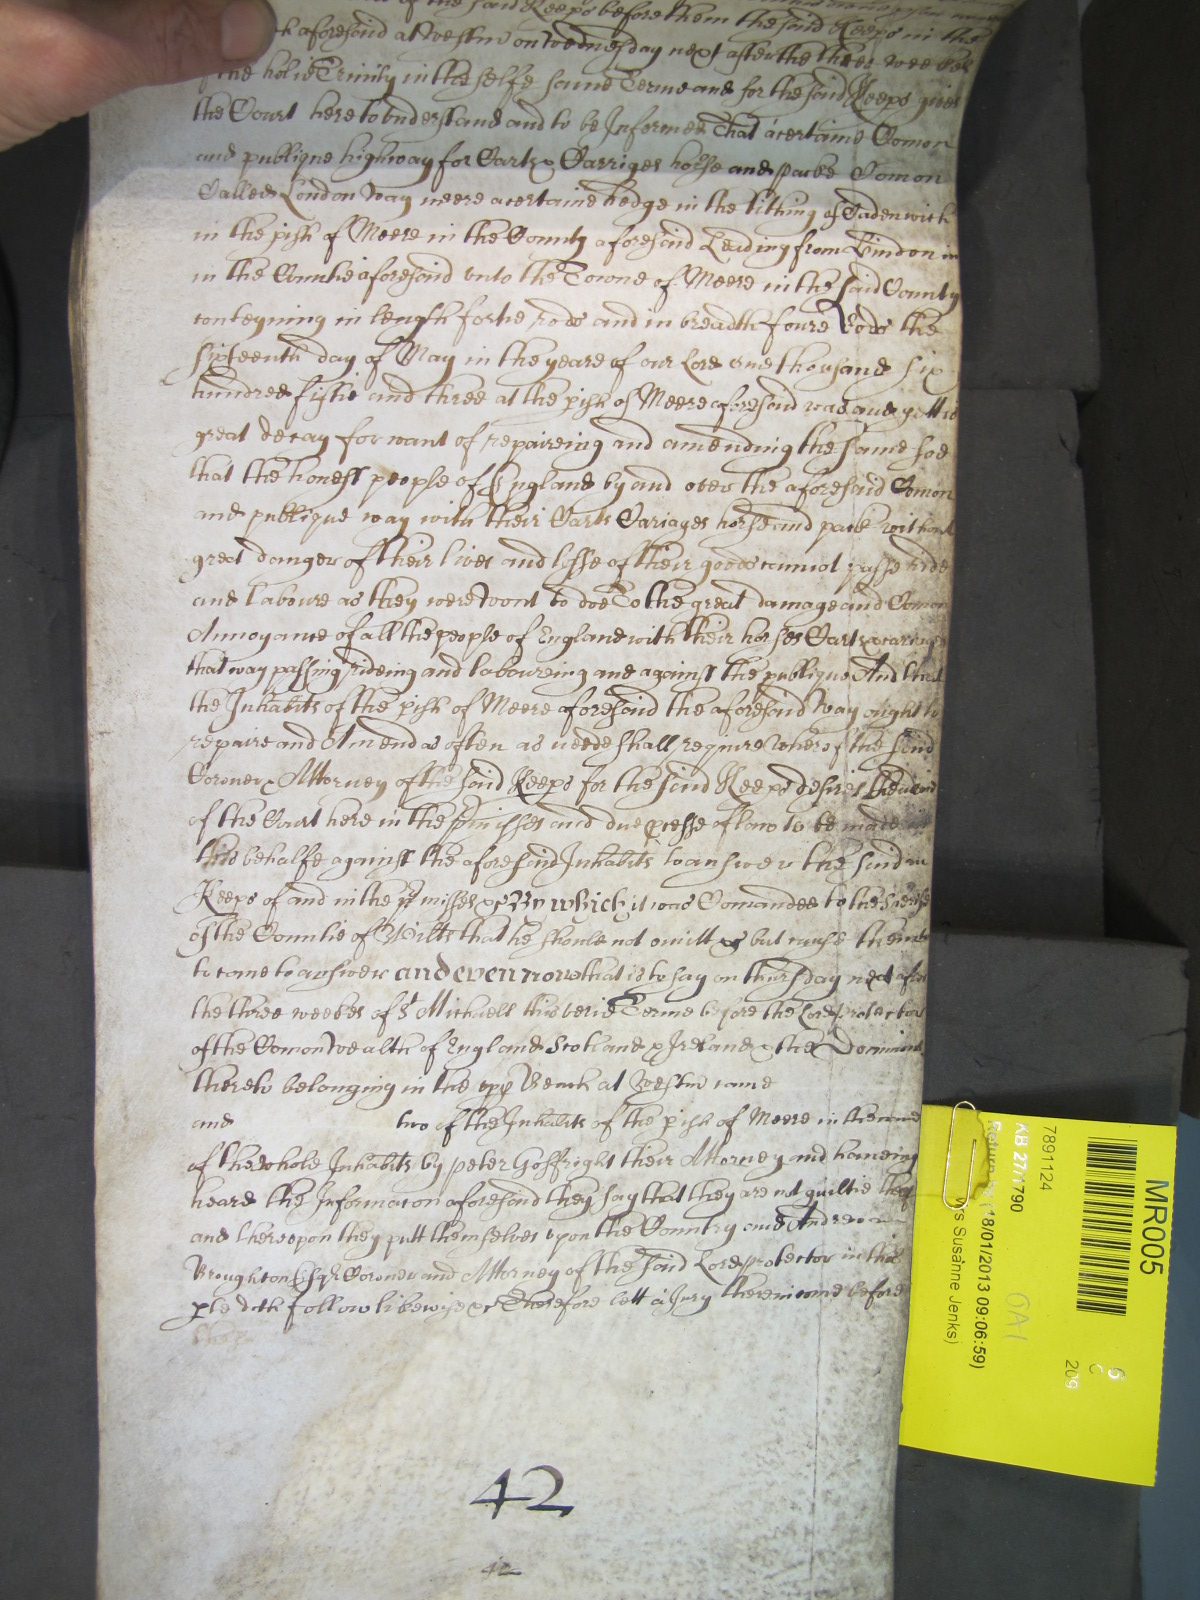 of the said Keeps before them the said Keeps in the
aforesaid at Westm on Wednesday next after the three weeks
of the holie Trinity in the selfe same Terme and for the said Keeps gives
the Court here to understand and to be Informed That a certaine Comon
and publique highway for Carts & Carriges horse and packe Comon
Called London Way neere a certaine hedge in the Tithing of
in the pish of Meere in the County aforesaid Leading from
in the Countie aforesaid unto the Towne of Meere in the said County
conteyning in length fortie rods and in breadth foure Rods the
sixteenth day of May in the yeare of our Lord one thousand six
hundred fiftie and three at the pish of Meere aforesaid was and yett is
great decay for want of repaireing and amending the same soe
that the honest people of England by and over the aforesaid Comon
and publique way with their Carts Cariages horse and pack without
great danger of their lives and losse of their goods cannot passe ride
and laboure as they were wont to doe To the great damage and Comon
Annoyance of all the people of England with their horses Carts &
that way passing rideing and laboureing and against the publique And that
the Inhabits of the pish of Meere aforesaid the aforesaid Way ought to
repaire and Amend as often as neede shall require Whereof the said
Coroner & Attorney of the said Keeps for the said Keeps desires the
of the Court here in the pmisses and due pcesse of law to be made in
this behalfe against the aforesaid Inhabits to answer the said
Keeps of and in the pmisses &c By which it was Comanded to the
of the Countie of Wilts that he should not omitt &c but cause them
to come to answer and even now that is to say on thursday next after
the three weekes of St Michaell this verie Terme before the Lord protector
of the Comon Wealth of England Scotland & Ireland & the Dominions
thereto belonging in the upp Bench at Westm came
and two of the Inhabits of the pish of Meere in the name
of the whole Inhabits by peter Goffright their Attorney and haveing
heard the Informacon aforesaid they say that they are not guiltie
and thereupon they putt themselves upon the Country and Andrew
Broughton Esqr Coroner and Attorney of the said Lord protector in this
doth follow likewise &c Therefore lett a Jury therein come before
the
42
42
MR005
7891124
KB 27/1790
Return by (18/01/2013 09:06:59)
Mrs Susanne Jenks)
OA1
6
C
209